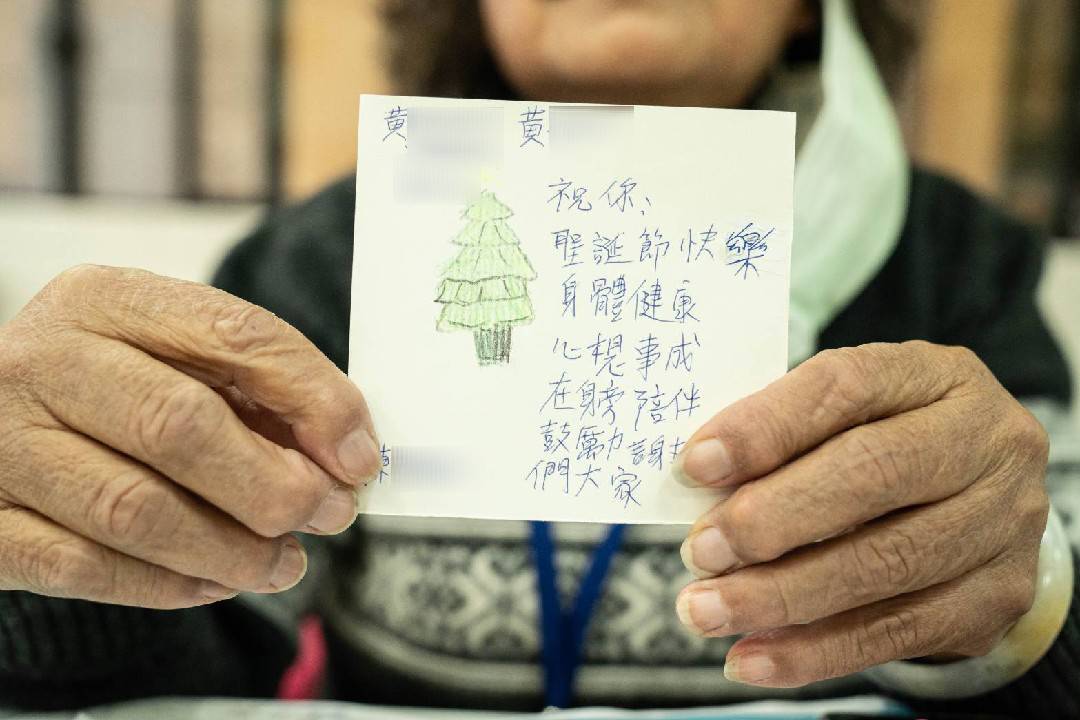 黃 黃
祝你:
聖誕節快樂
身體健康
心想事成
在身旁陪伴
鼓勵 謝
們大家